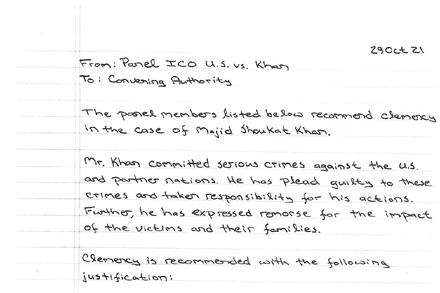 29 Oct 21
From: Panel ICO U.S. vs. Khan
To: Convening Authority
The panel members listed below recommend clemency
in the case of Majid Shoukat Khan.
Mr. Khan committed serious crimes against the U.S.
and partner nations. He has plead guilty to these
crimes and taken responsibility for his actions.
Further, he has expressed remorse for the impact
of the victims and their families.
Clemency is recommended with the following
justification: